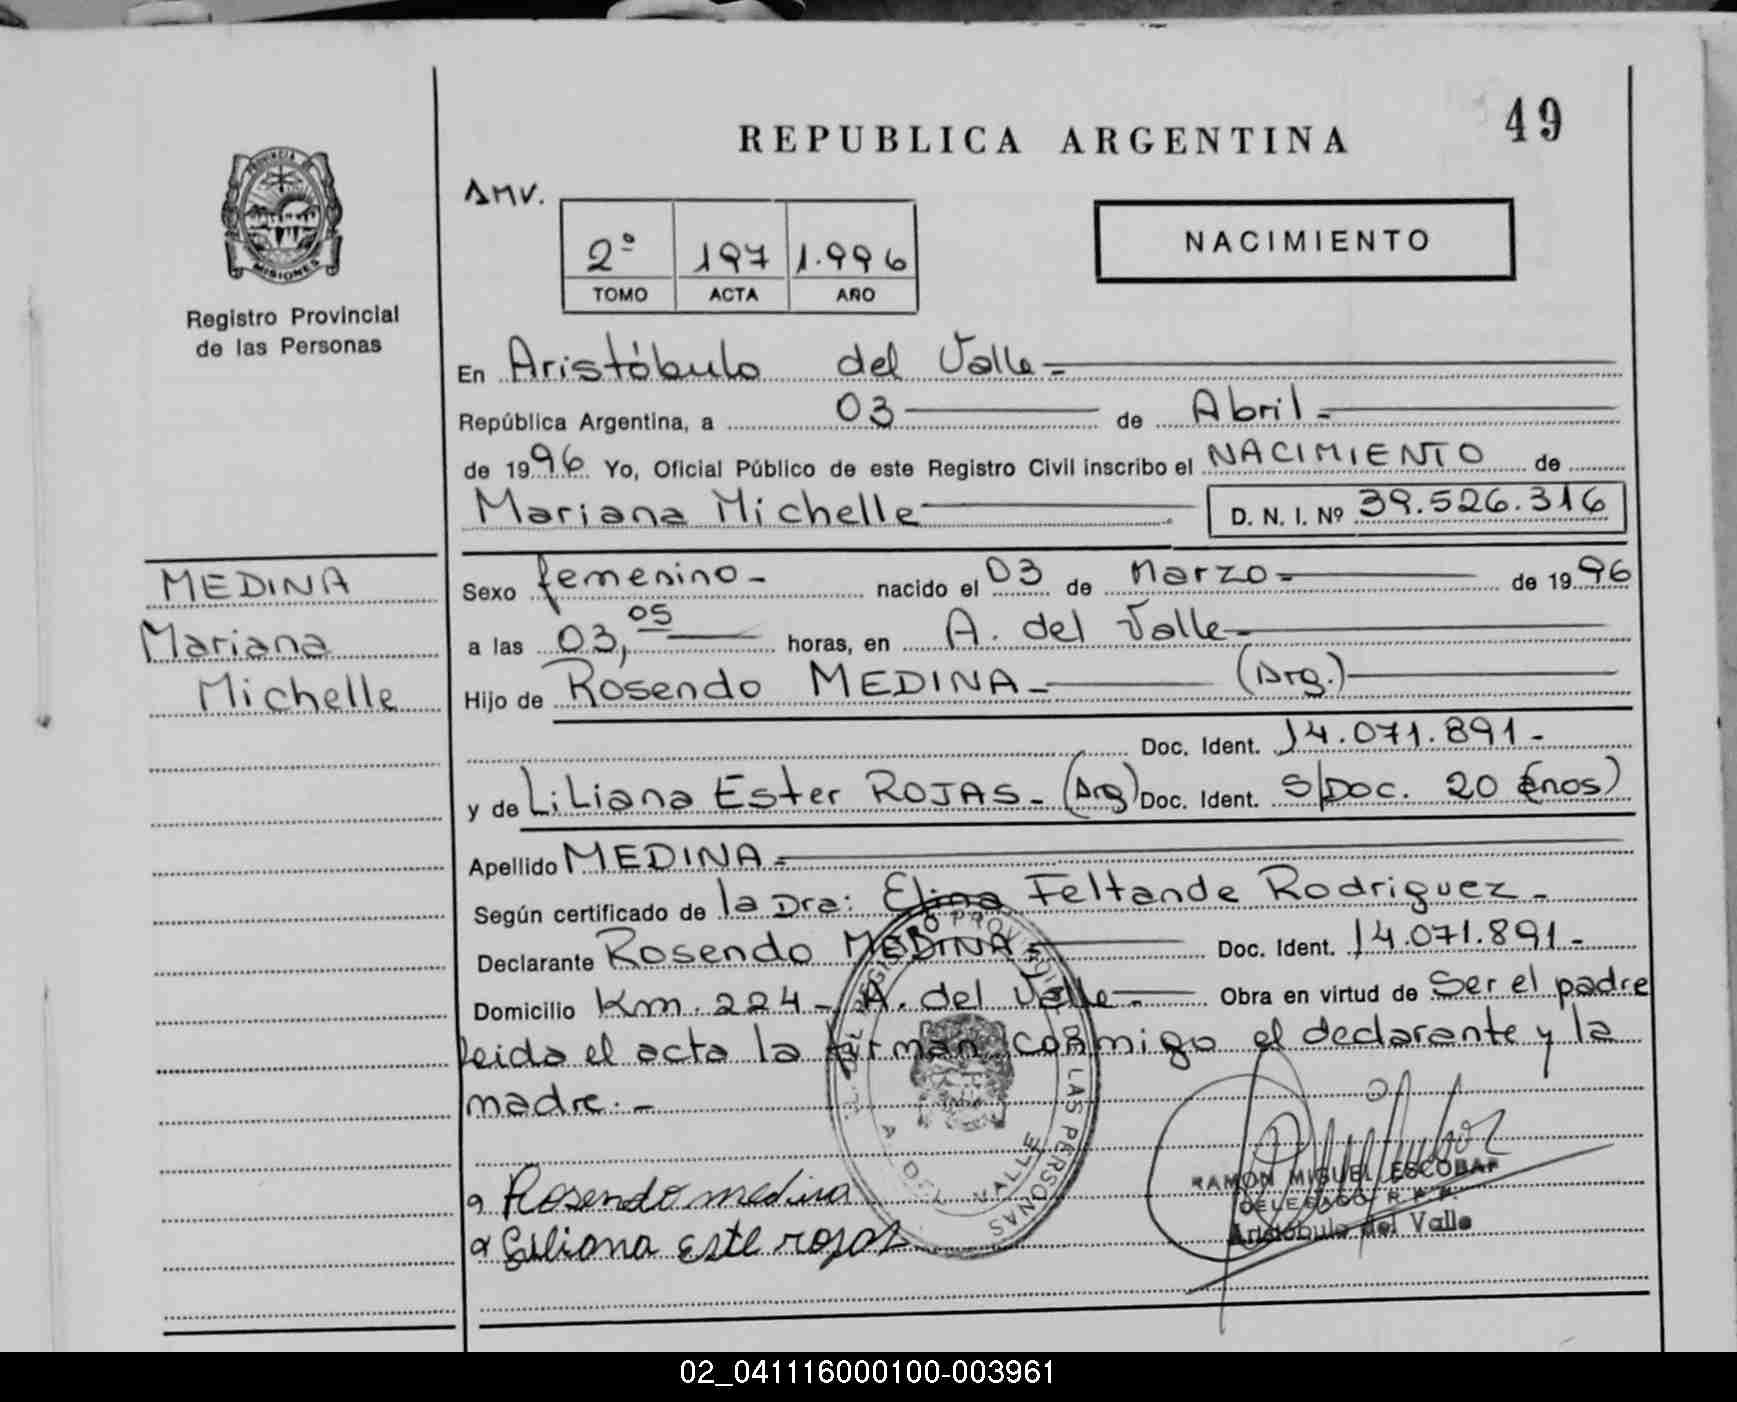 49
REPUBLICA ARGENTINA
PROVINCIA DE
MISIONES
Registro Provincial
de las Personas
AMV.
2º 197 1.996
TOMO ACTA AÑO
NACIMIENTO
En Aristóbulo del Valle-
República Argentina, a 03 de Abril-
de 1996 Yo, Oficial Público de este Registro Civil inscribo el NACIMIENTO de
Mariana Michelle D. N. I. Nº 39.526.316
MEDINA
Mariana
Michelle
Sexo femenino- nacido el 03 de Marzo- de 1996
a las 03,05 horas, en A. del Valle-
Hijo de Rosendo MEDINA- (Arg.)
Doc. Ident. 14.071.891-
y de Liliana Ester ROJAS- (Arg) Doc. Ident. S/Doc. 20 (nos)
Apellido MEDINA-
Según certificado de la Dra: Elina Feltande Rodriguez-
Declarante Rosendo MEDINA- Doc. Ident. 14.071.891-
Domicilio Km. 224- A. del Valle- Obra en virtud de Ser el padre
leida el acta la firman conmigo el declarante y la
madre.-
REGISTRO PROVINCIAL DE LAS PERSONAS
A. DEL VALLE
Rosendo medina
Liliana Este rojas
RAMON MIGUEL ESCOBAR
DELEGADO R.P.P.
Aristóbulo del Valle
02_041116000100-003961